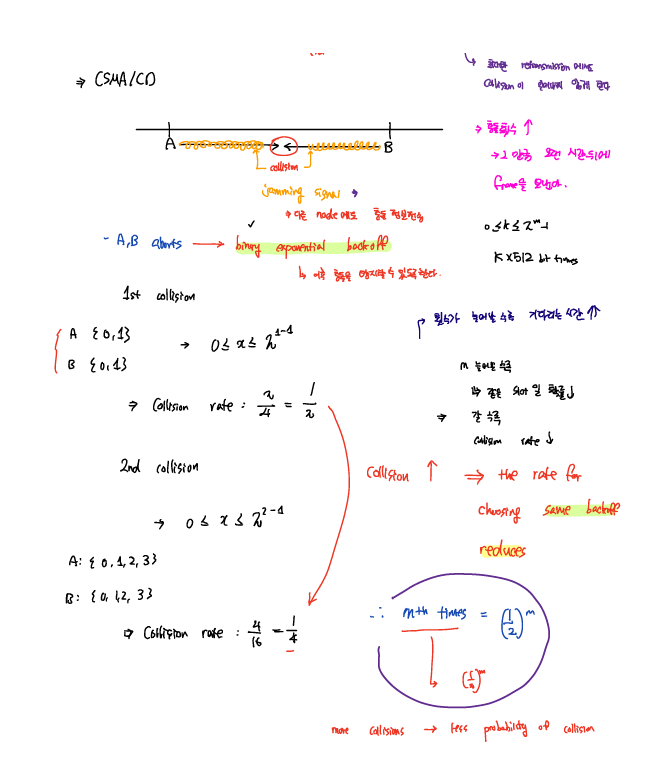 ⇒ CSMA/CD
A B
collision
jamming signal →
→ 다른 node에도 충돌 정보전송
- A,B aborts → binary exponential backoff
↳ 이후 충돌을 방지할 수 있도록한다.
1st collision
A {0,1}
B {0,1}
→ 0 ≤ x ≤ 2^1-1
⇒ Collision rate : 2/4 = 1/2
2nd collision
→ 0 ≤ x ≤ 2^2-1
A: {0,1,2,3}
B: {0,1,2,3}
⇒ Collision rate : 4/16 = 1/4
retransmission
collision이 않게 한다
→ 충돌횟수 ↑
→ 2 만큼 시간뒤에
frame을 보낸다.
0 ≤ k ≤ 2^m-1
K × 512 bit times
횟수가 늘어날 수록 기다리는 시간 ↑↑
m 늘어날 수록
↳ 같은 slot 일 확률↓
⇒ 갈 수록
collision rate ↓
Collision ↑ ⇒ the rate for
choosing same backoff
reduces
∴ mth times = (1/2)^m
more collisions → less probability of collision